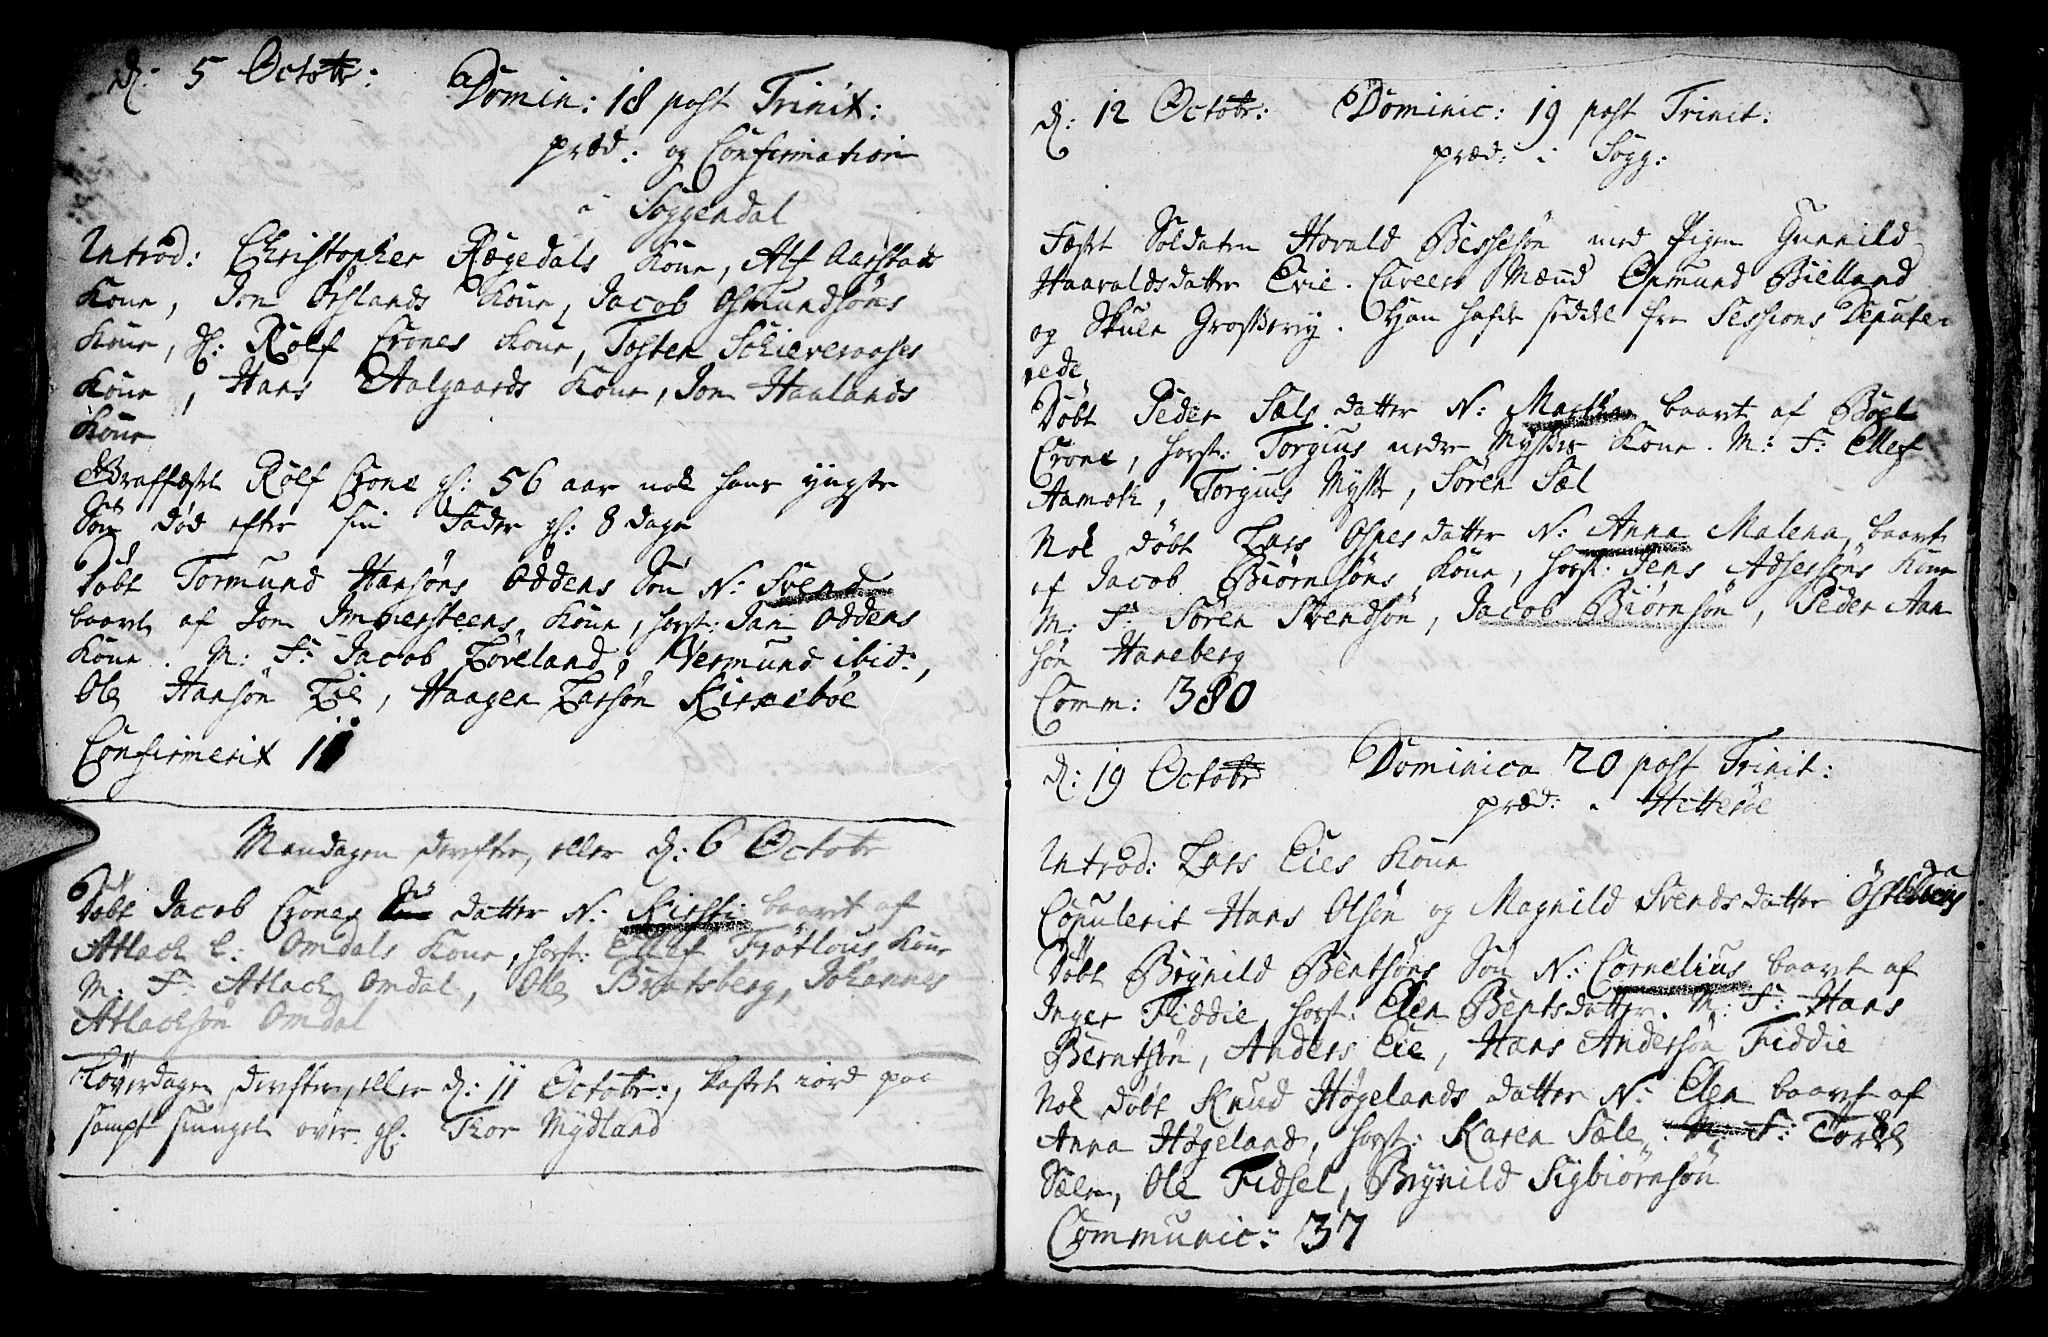 d: 5 Octobr:
Domin: 18 post Trinit:
præd: og Confirmation
i Soggendal
Introd: Christopher Rægedals Kone, Alf Aarstads
Kone, Jon Ørslands Kone, Jacob Osmundsøns
Kone, sl: Rolf Crones Kone, Tosten Schieveraases
Kone, Hans Aalgaards Kone, Jon Haalands
Kone
Graffæstet Rolf Crone gl: 56 aar nok hans yngste
Søn død efter sin Fader gl: 8 dage
Døbt Tormund Hansøns Oddens Søn N: Svend
baaret af Jon Immersteens Kone, horst: Jan Oddens
Kone. M: F: Jacob Løveland, Vermund ibid:,
Ole Hansøn Lie, Haagen Larsøn Kirkebøe
Confirmerit 11
Mandagen derefter, eller d: 6 Octobr
Døbt Jacob Crones datter N: Kirsti baaret af
Atlach C: Omdals Kone, horst: Ellef Frøtlous Kone
M: F: Atlach Omdal, Ole Bratsberg, Johannes
Atlachsøn Omdal
Løverdagen derefter, eller d: 11 Octobr:, kastet iord paa
sampt siunget over gl: Thor Mydland
d: 12 Octobr: Dominic: 19 post Trinit:
præd: i Sogg:
Fæst Soldaten Hovald Bessesøn med Pigen Gunnild
Haavaldsdatter Evie. Caveers Mænd Osmund Bielland
og Skule Grosteviig. Han hafde seddel fra Sessions Depute-
rede
Døbt Peder Sæls datter N: Martha baaret af Bøel
Crone, horst: Torgius nedre Mysses Kone. M: F: Ellef
Aamoth, Torgius Mysse, Søren Sæl
Nok døbt Lars Osnes datter N: Anna Malena, baaret
af Jacob Biørnsøns Kone, horst: Jens Adsersøns Kone
M: F: Søren Svendsøn, Jacob Biørnsøn, Peder Aan
søn Haneberg
Comm: 380
d: 19 Octobr Dominica 20 post Trinit:
præd: i Hitterøe
Introd: Lars Eies Kone
Copulerit Hans Olsøn og Magnild Svendsdatter
Døbt Brynild Bentsøns Søn N: Cornelius baaret af
Inger Fiddie, horst: Elen Bentsdatter. M: F: Hans
Berntsøn, Anders Eie, Hans Andersøn Fiddie
Nok døbt Knud Høgelands datter N: Elen baaret af
Anna Høgeland, horst: Karen Sæle. M: F: Torkel
Sæle, Ole Fidsel, Brynild Sigbiørnsøn
Communic: 37